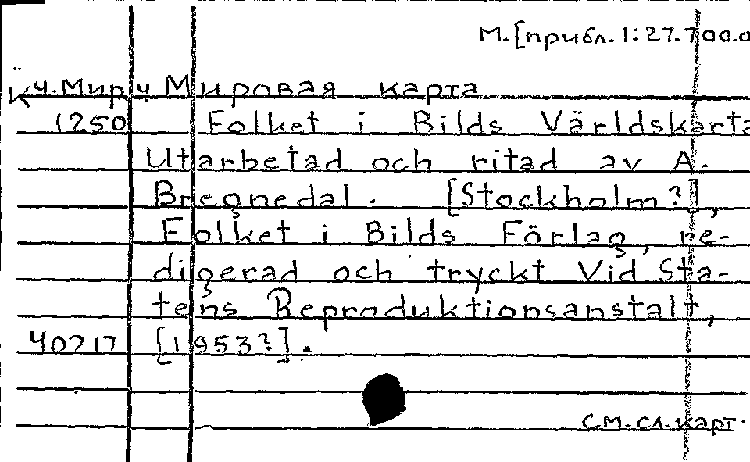 М.[прибл. 1:27.700.0
К ч.Мир ч Мировая карта
1250 Folket i Bilds Världskarta
Utarbetad och ritad av A.
Bregnedal. [Stockholm?],
Folket i Bilds Förlag, re-
digerad och tryckt Vid Sta-
tens Reproduktionsanstalt,
40717 [1953?].
см. сл. карт.